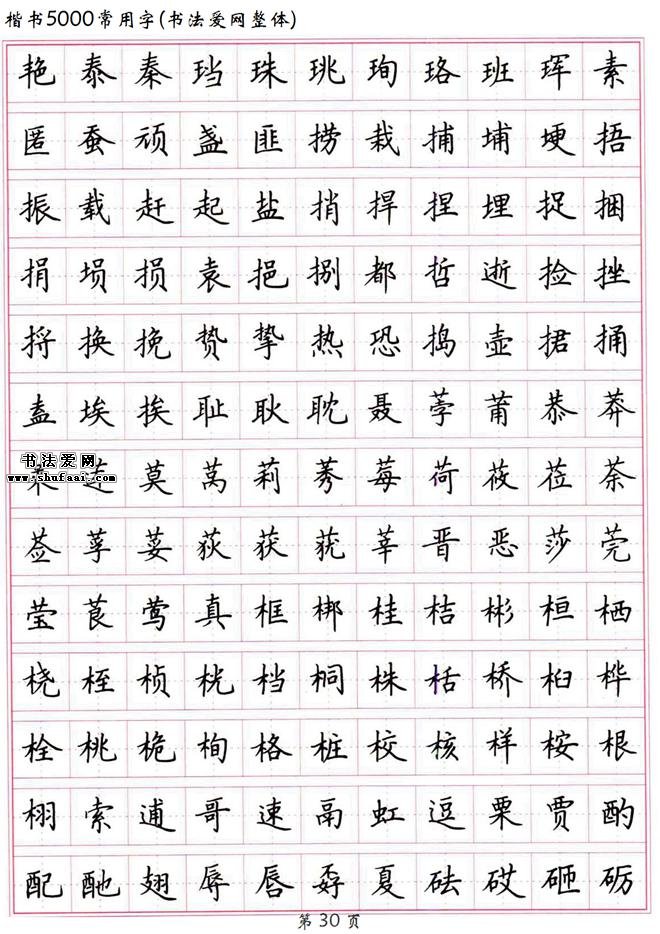 楷书5000常用字(书法爱网整体)
艳泰秦珰珠珧珣珞班珲素
匿蚕顽盏匪捞栽捕埔埂捂
振载赶起盐捎捍捏埋捉捆
捐埙损袁挹捌都哲逝捡挫
捋换挽贽挚热恐捣壶捃捅
盍埃挨耻耿耽聂荸莆恭莽
莱莲莫莴莉莠莓荷莜莅荼
莶莩荽荻获莸莘晋恶莎莞
莹莨莺真框梆桂桔彬桓栖
桡桎桢桄档桐株栝桥桕桦
栓桃桅栒格桩校核样桉根
栩索逋哥速鬲虹逗栗贾酌
配酏翅辱唇孬夏砝砹砸砺
书法爱网
www.shufaai.com
第 30 页